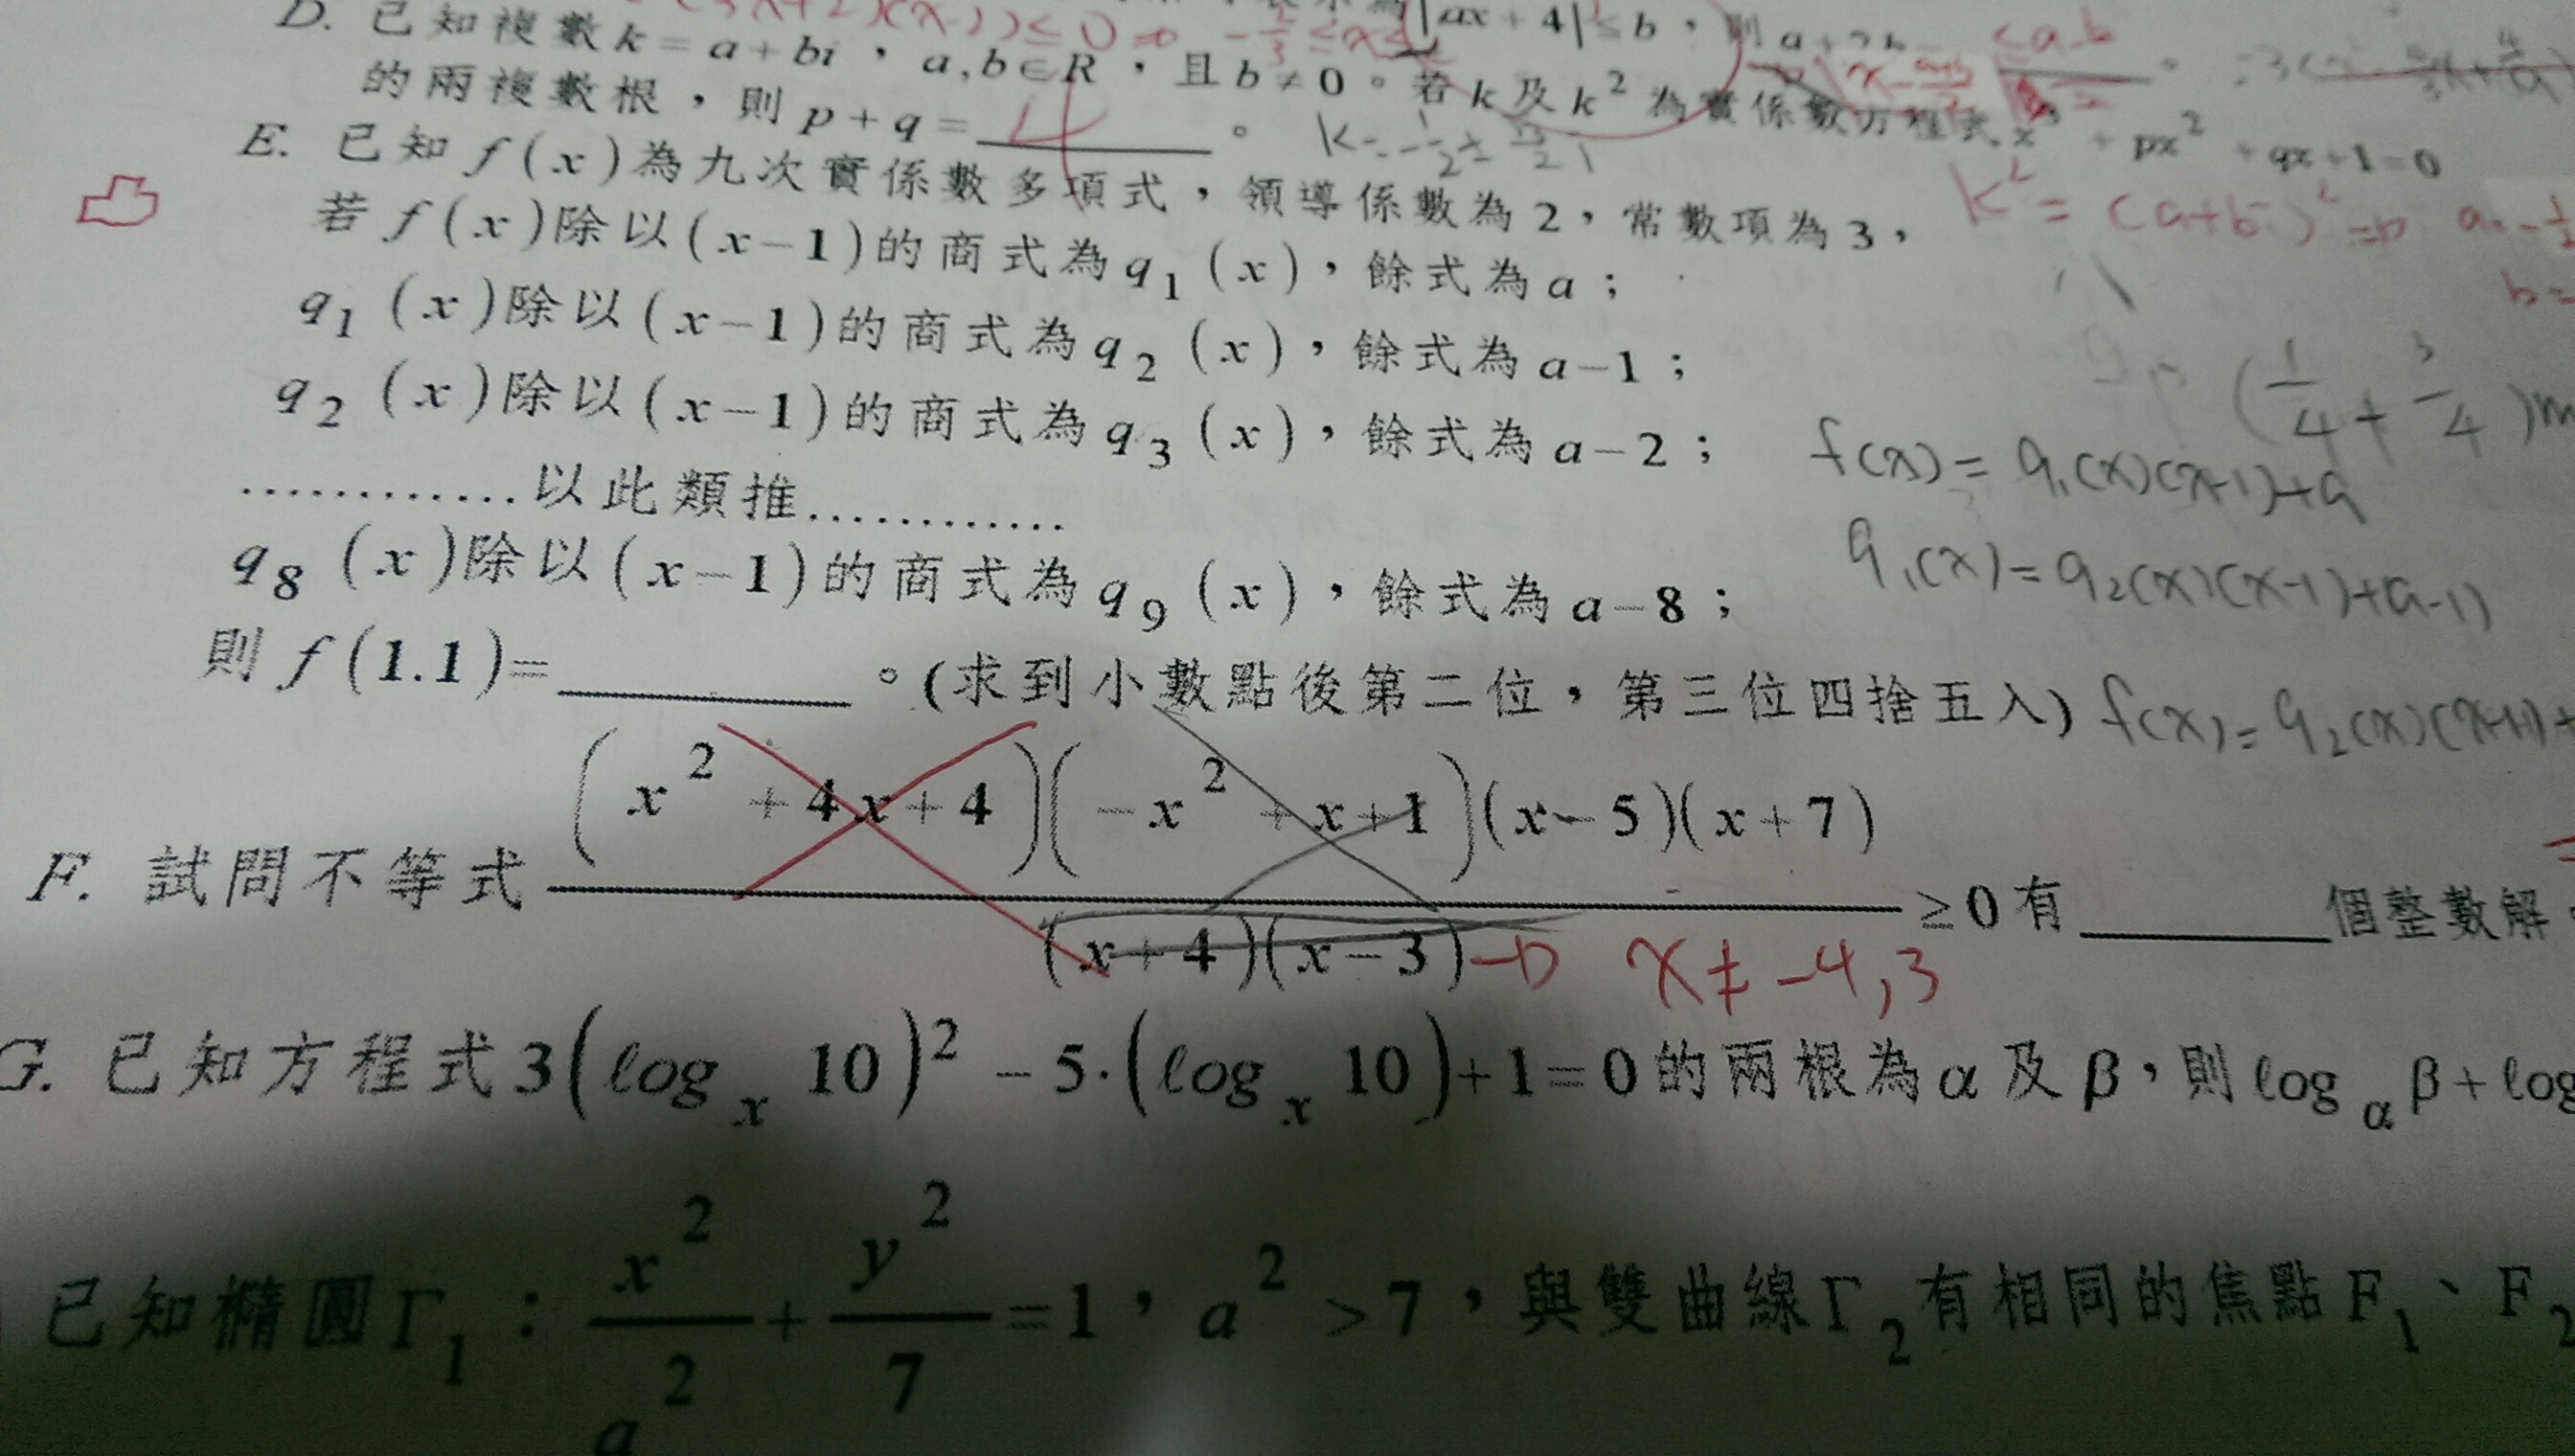 |ax+4|≤b，則
D. 已知複數k=a+bi，a,b∈R，且b≠0。若k及k²為實係數方程式x³+px²+qx+1=0
的兩複數根，則p+q=4。
E. 已知f(x)為九次實係數多項式，領導係數為2，常數項為3，
若f(x)除以(x-1)的商式為q₁(x)，餘式為a；
q₁(x)除以(x-1)的商式為q₂(x)，餘式為a-1；
q₂(x)除以(x-1)的商式為q₃(x)，餘式為a-2；
…………以此類推…………
q₈(x)除以(x-1)的商式為q₉(x)，餘式為a-8；
則f(1.1)=________。(求到小數點後第二位，第三位四捨五入)
K²=(a+bi)²
(1/4+3/4)
f(x)=q₁(x)(x-1)+a
q₁(x)=q₂(x)(x-1)+(a-1)
f(x)=q₂(x)(x-1)+
F. 試問不等式 (x²+4x+4)(-x²+x+1)(x-5)(x+7) / (x+4)(x-3) ≥0有________個整數解
x≠-4,3
G. 已知方程式3(logₓ10)²-5·(logₓ10)+1=0的兩根為α及β，則log_α β+log
已知橢圓Γ₁：x²/a²+y²/7=1，a²>7，與雙曲線Γ₂有相同的焦點F₁、F₂